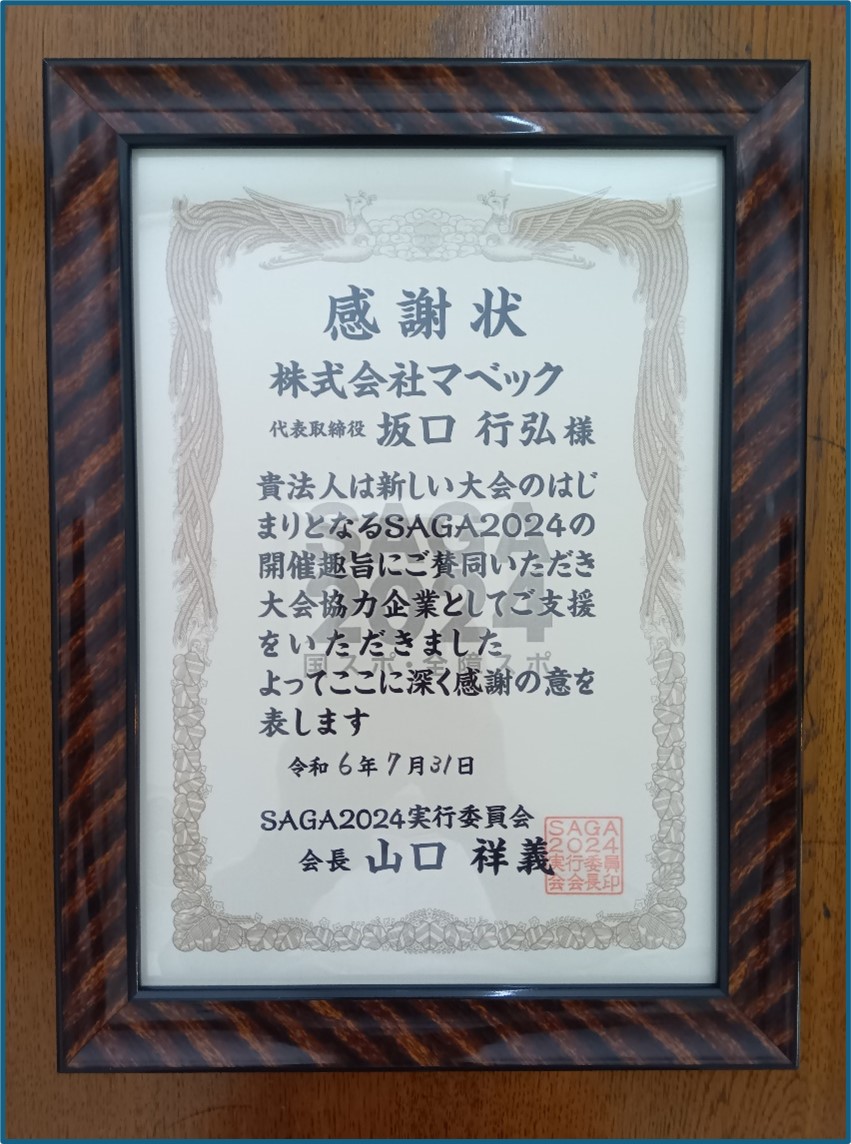 感謝状
株式会社マベック
代表取締役 坂口 行弘様
貴法人は新しい大会のはじ
まりとなるSAGA2024の
開催趣旨にご賛同いただき
大会協力企業としてご支援
をいただきました
よってここに深く感謝の意を
表します
令和6年7月31日
SAGA2024実行委員会
会長 山口 祥義
SAGA
2024
実行委員
会会長印
SAGA
2024
国スポ・全障スポ